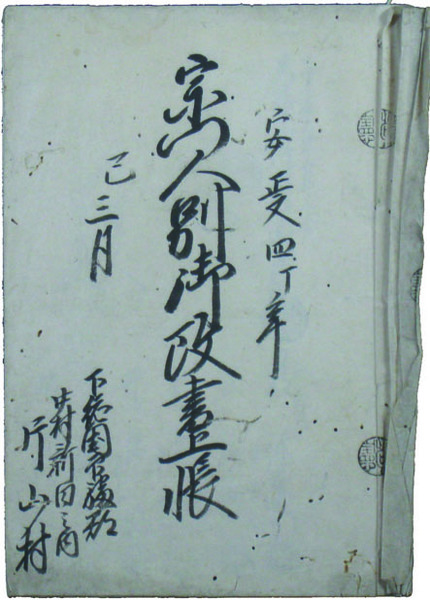 安政四丁年
宗門人別御改書上帳
巳三月
下総国
村新田之内
片山村